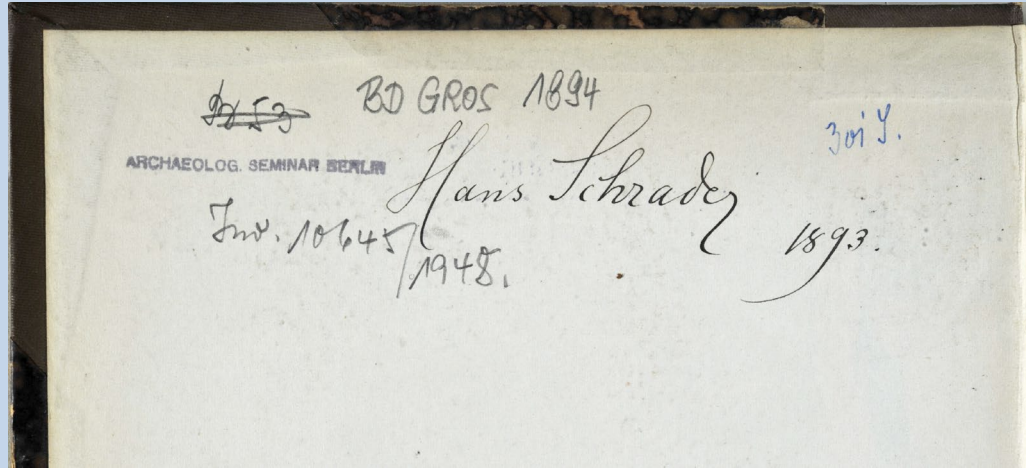 BD GROS 1894
ARCHAEOLOG. SEMINAR BERLIN
Hans Schrader
1893.
Inv. 10645/1948.